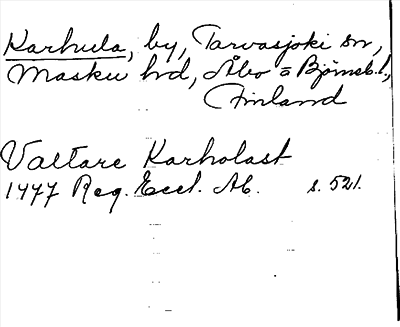 Karhula, by, Tarvasjoki sn,
Masku hd, Åbo o Björneb. l.,
Finland
Valtare Karholast
1477 Reg. Eccl. Ab. s. 521.